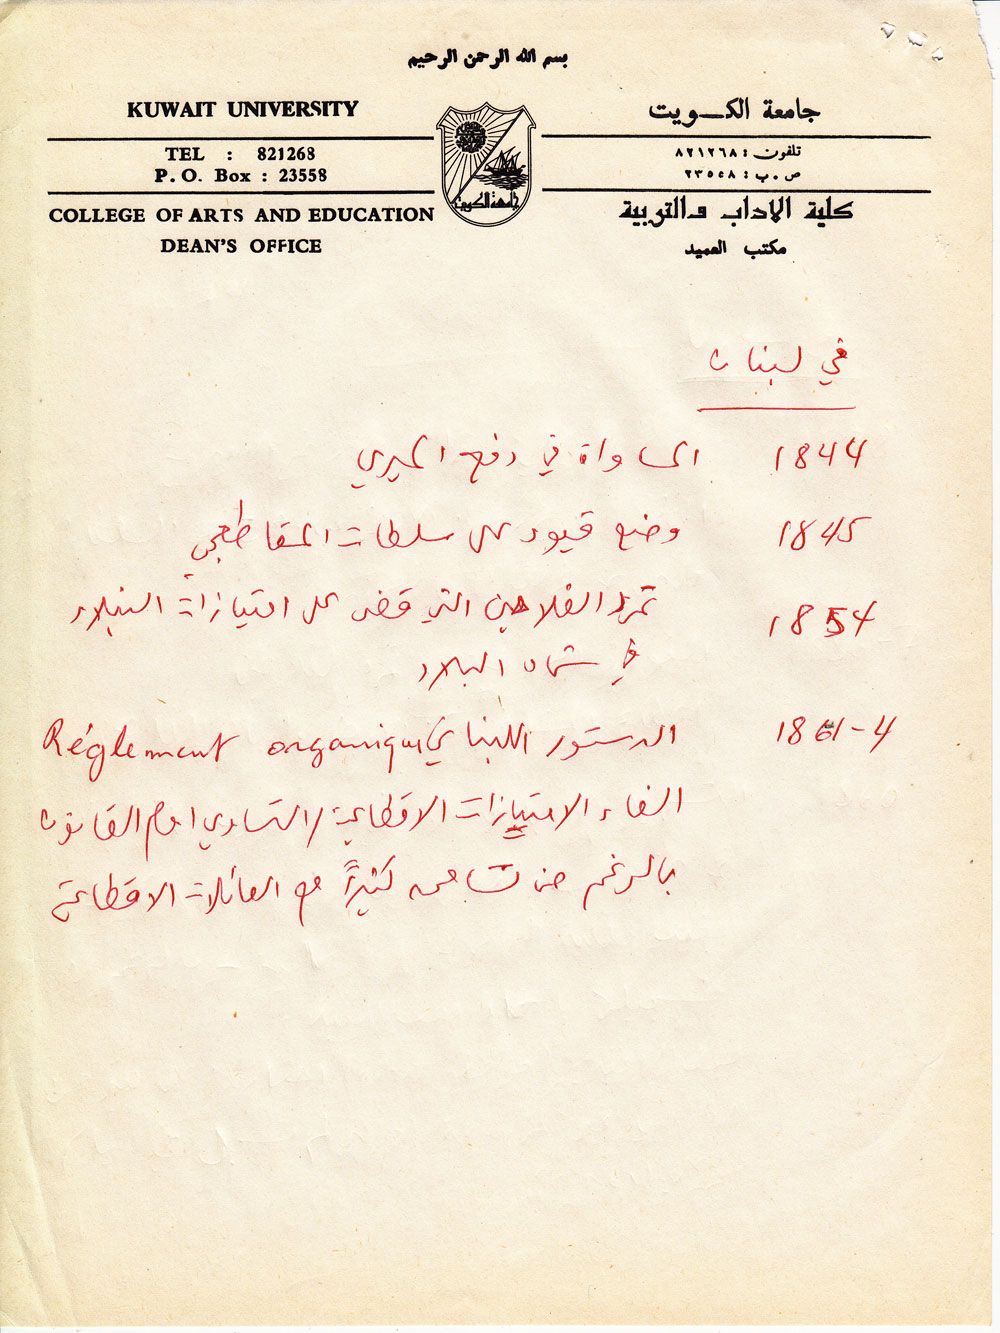 بسم الله الرحمن الرحيم
KUWAIT UNIVERSITY
جامعة الكـويت
TEL : 821268
تلفون : ٨٢١٢٦٨
P. O. Box : 23558
ص . ب : ٢٣٥٥٨
COLLEGE OF ARTS AND EDUCATION
كلية الاداب والتربية
DEAN'S OFFICE
مكتب العميد
جامعة الكويت
في لبنان
1844 المساواة في دفع الميري
1845 وضع قيود على سلطات المقاطعجي
1854 تمرد الفلاحين التي قضى على امتيازات النبلاء
في شمال البلاد
1861-4 الدستور اللبناني Réglement organique
الغاء الامتيازات الاقطاعية / التساوي امام القانون
بالرغم من تسامحه كثيراً مع العائلات الاقطاعية